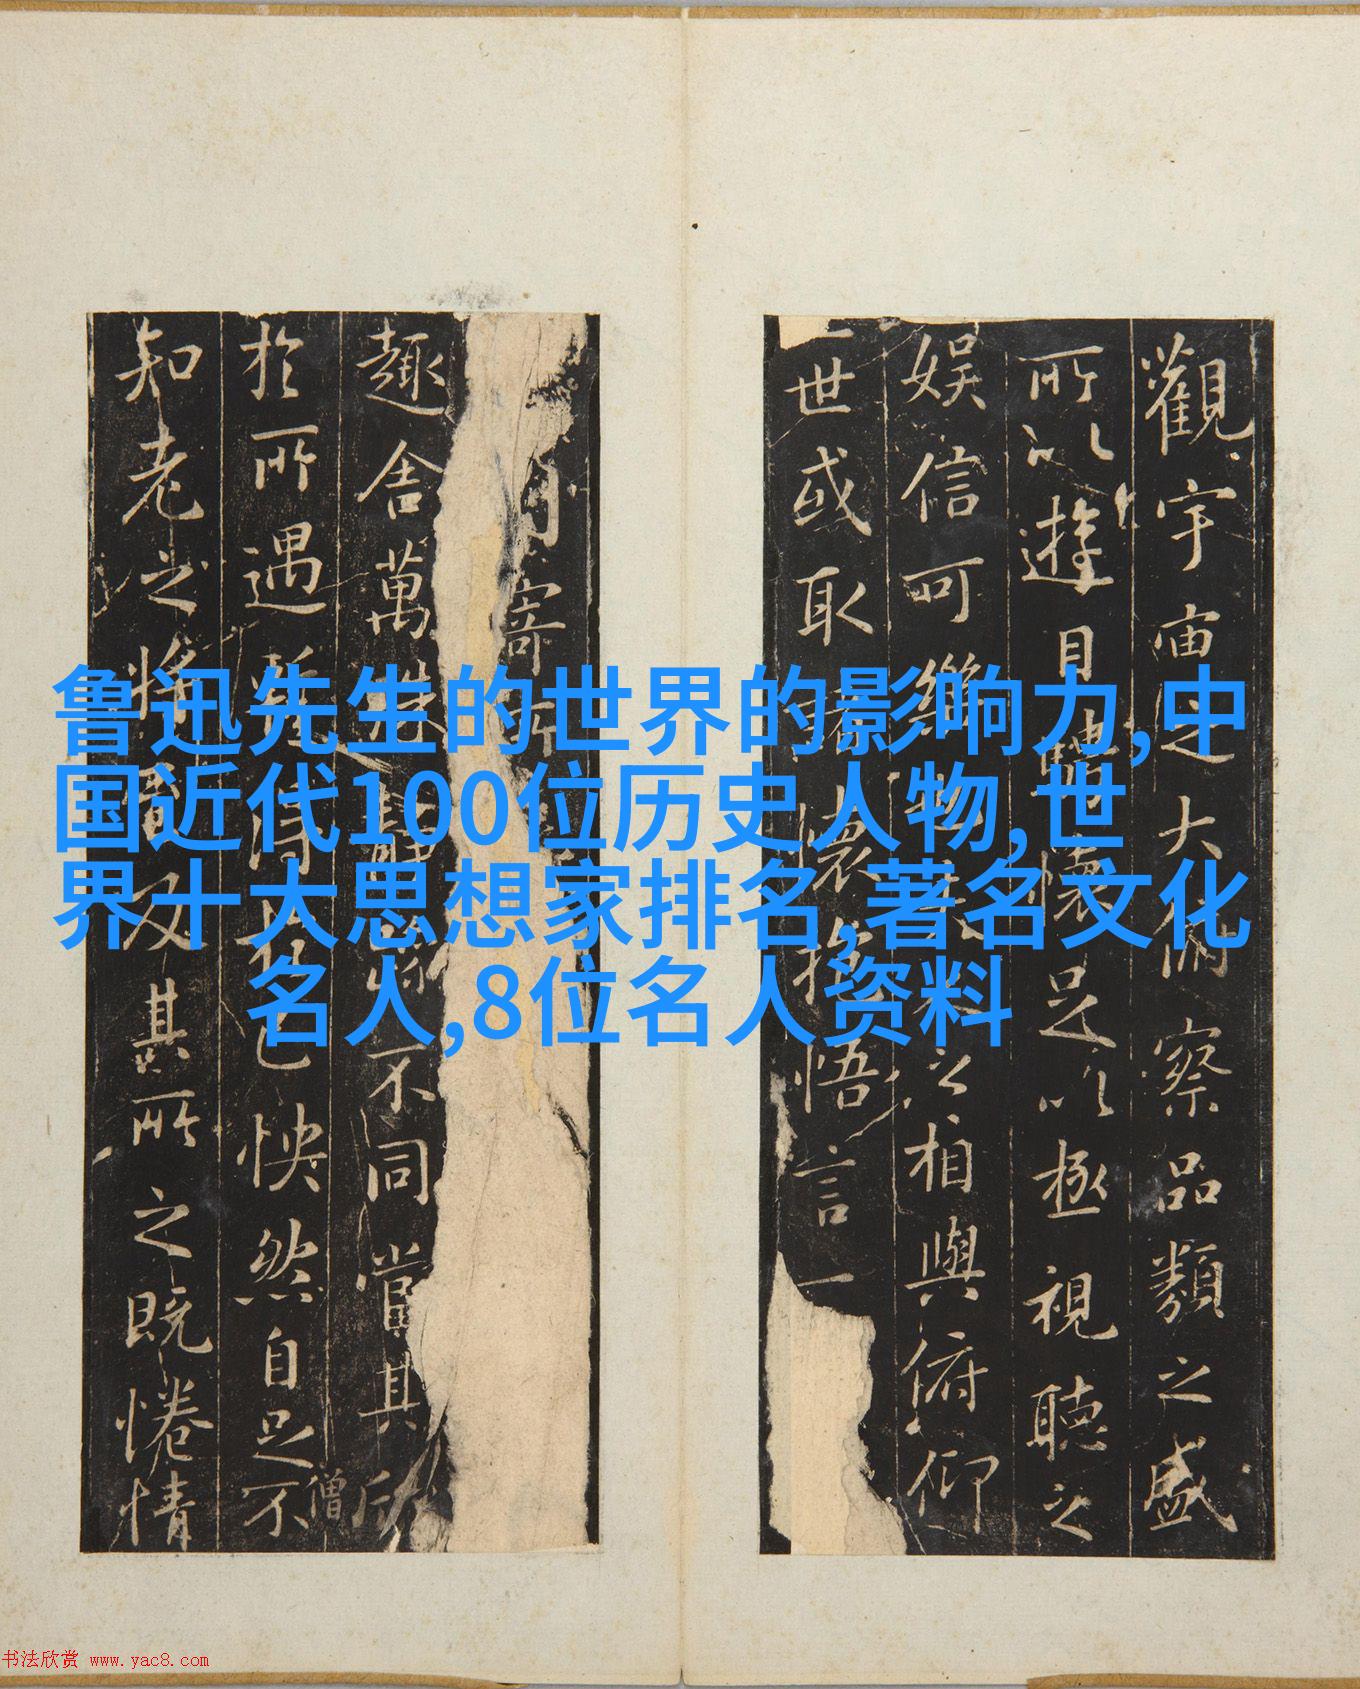 鲁迅先生的世界的影响力,中
国近代100位历史人物,世
界十大思想家排名,著名文化
名人,8位名人资料
觀宇宙之大俯察品類之盛
所以遊目騁懷足以極視聽之
娛信可樂也夫之相與俯仰
世或取諸懷抱悟言一
寄所
趣舍萬殊靜躁不同當其欣
僧
於所遇蹔得於己怏然自足不
知老之將至及其所之既惓情
书法欣赏 www.yac8.com